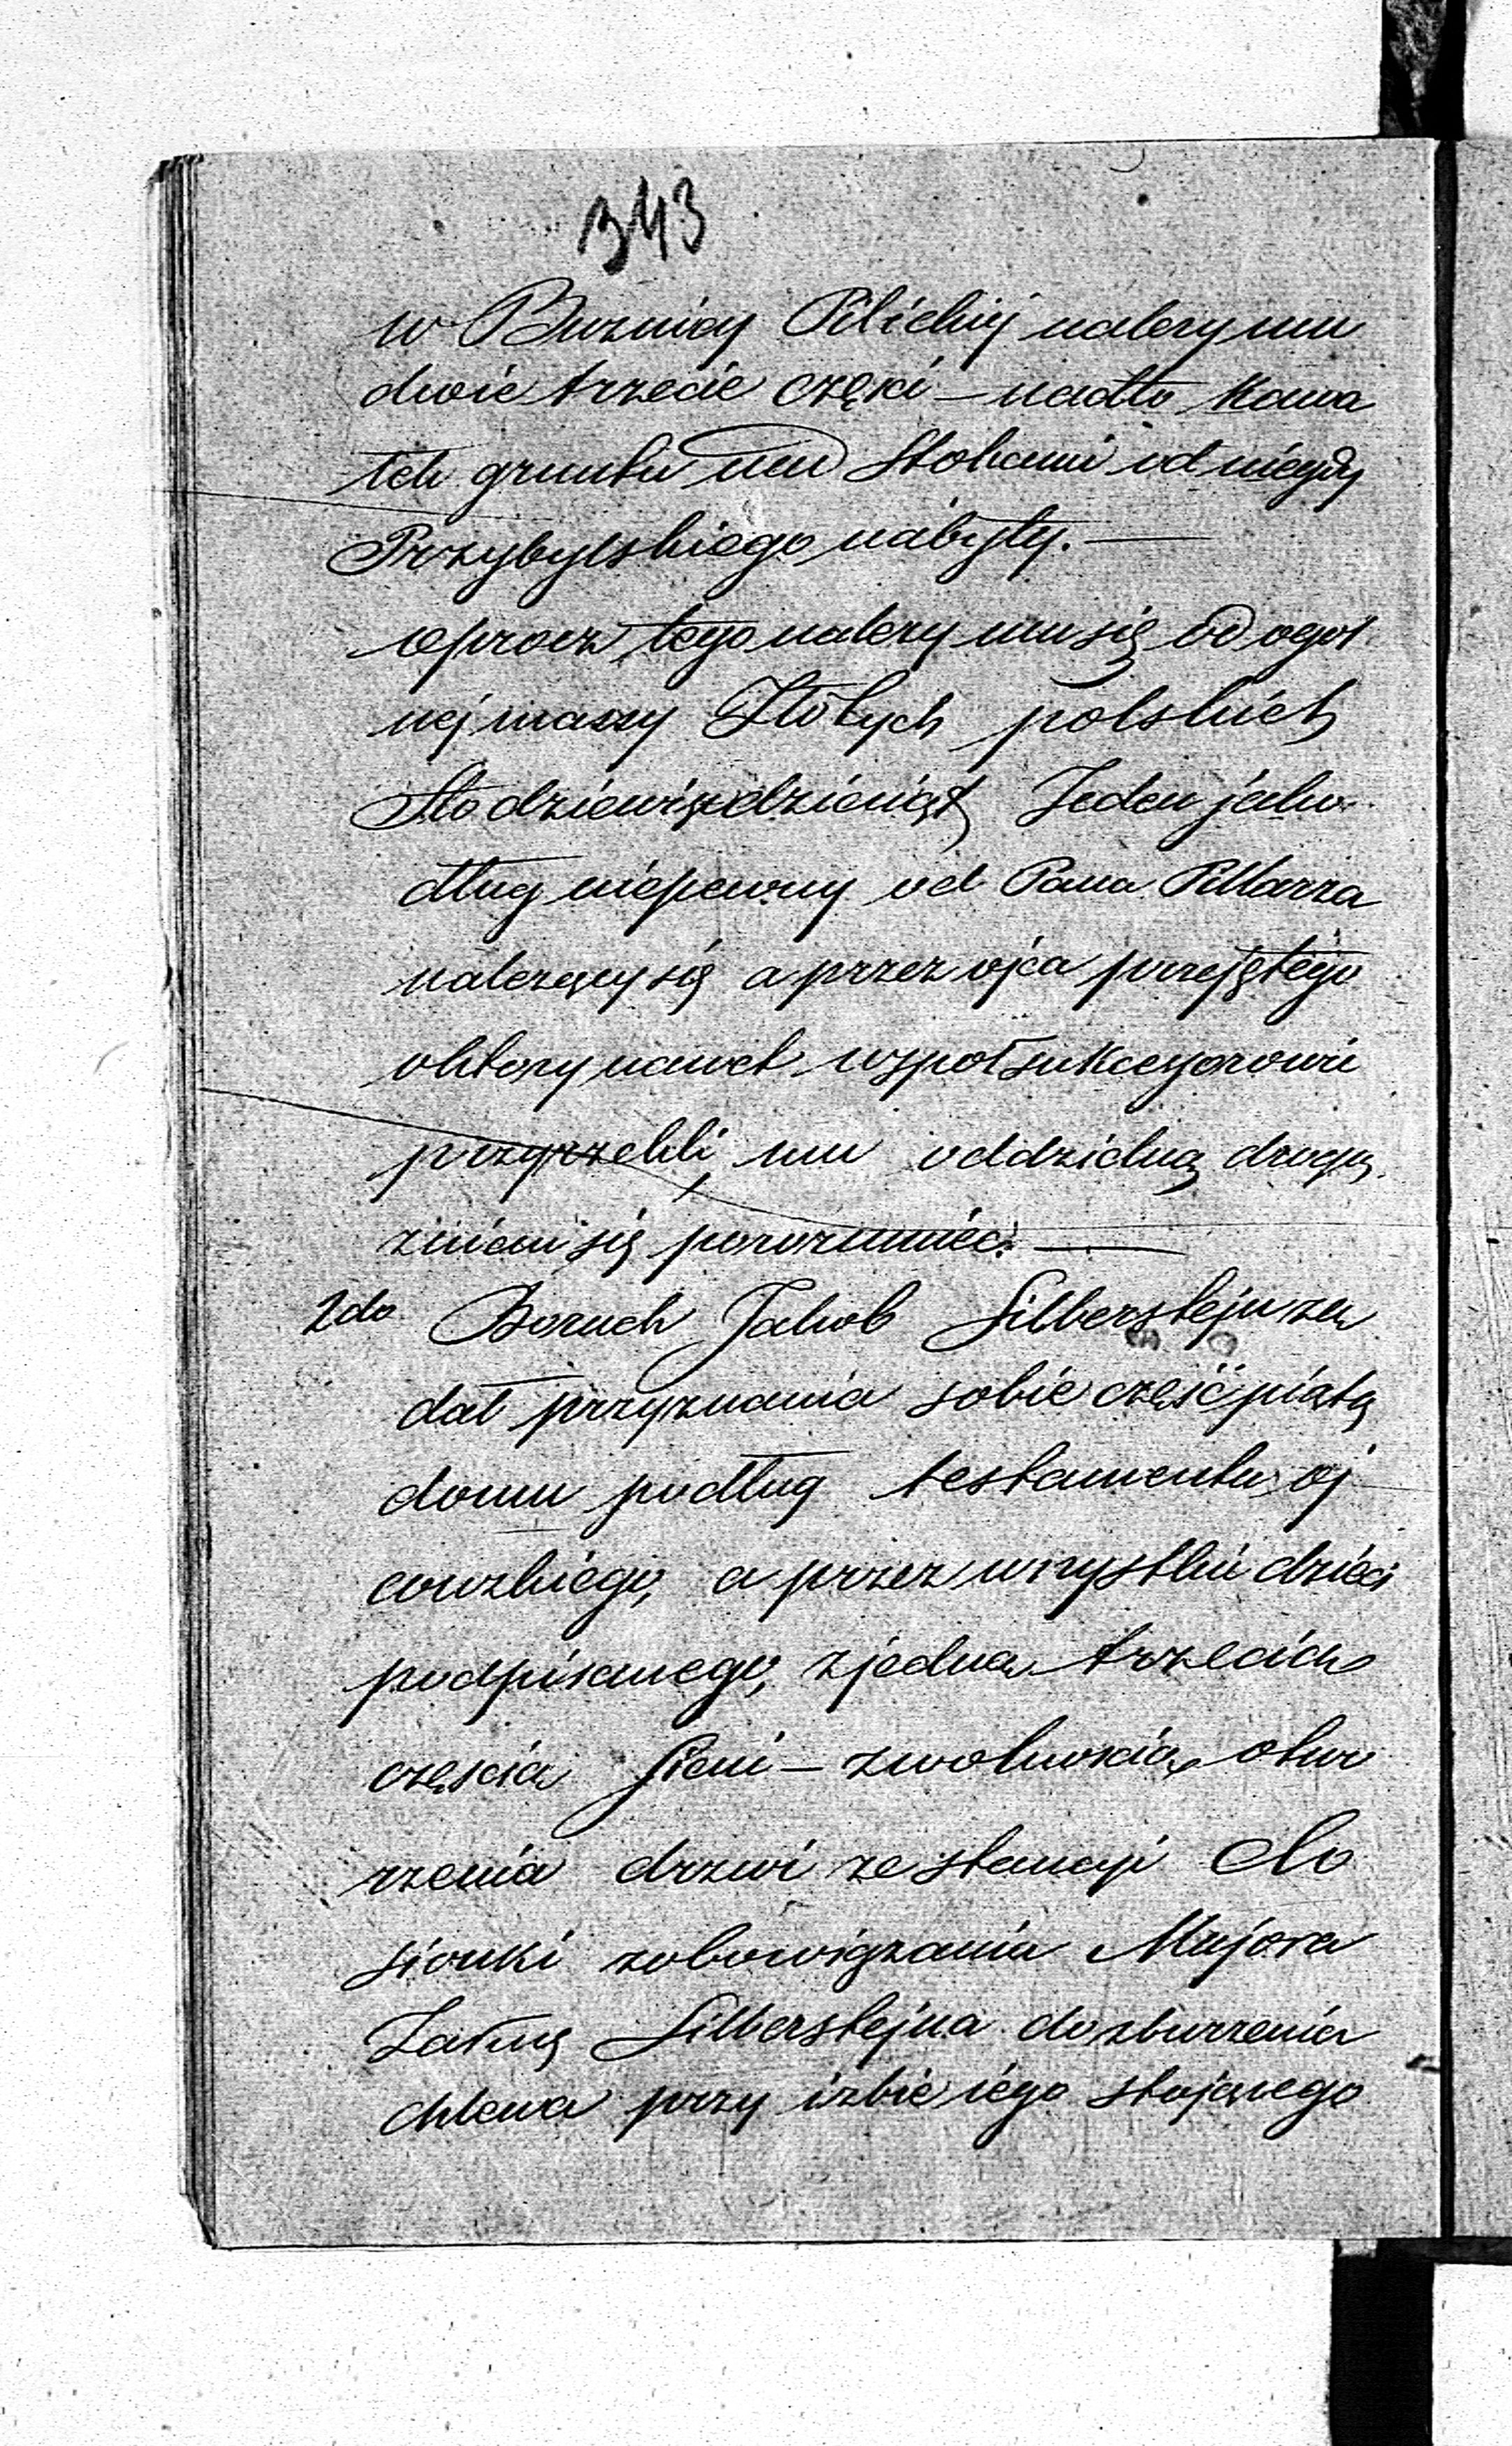 343
w Buznicy Pilickiej nalezy mu
dwie trzecie części – nadto kawa
łek gruntu nad Stokami od niegdy
Przybylskiego nabyty. —
oprocz tego nalezy mu się od ogol
nej massy Złotych polskich
Sto dziewięcdziesiąt Jeden jako
dług niepewny od Pana
nalezący się a przez ojca przejętego
o ktory nawet wspołsukcessorowie
przyrzekli mu oddzielną drogą
z niem się porozumiec. —
2do Boruch Jakob Silbersztejn za
dał przyznania sobie część piątą
domu podług testamentu oj
cowskiego, a przez wszystkie dzieci
podpisanego, z jedna trzecia
częscia Sieni – z wolnoscia otwo
rzenia drzwi ze stancji do
sionki zobowiązania Majora
Załmę Silbersztejna do zburzenia
chlewa przy izbie iego stojącego